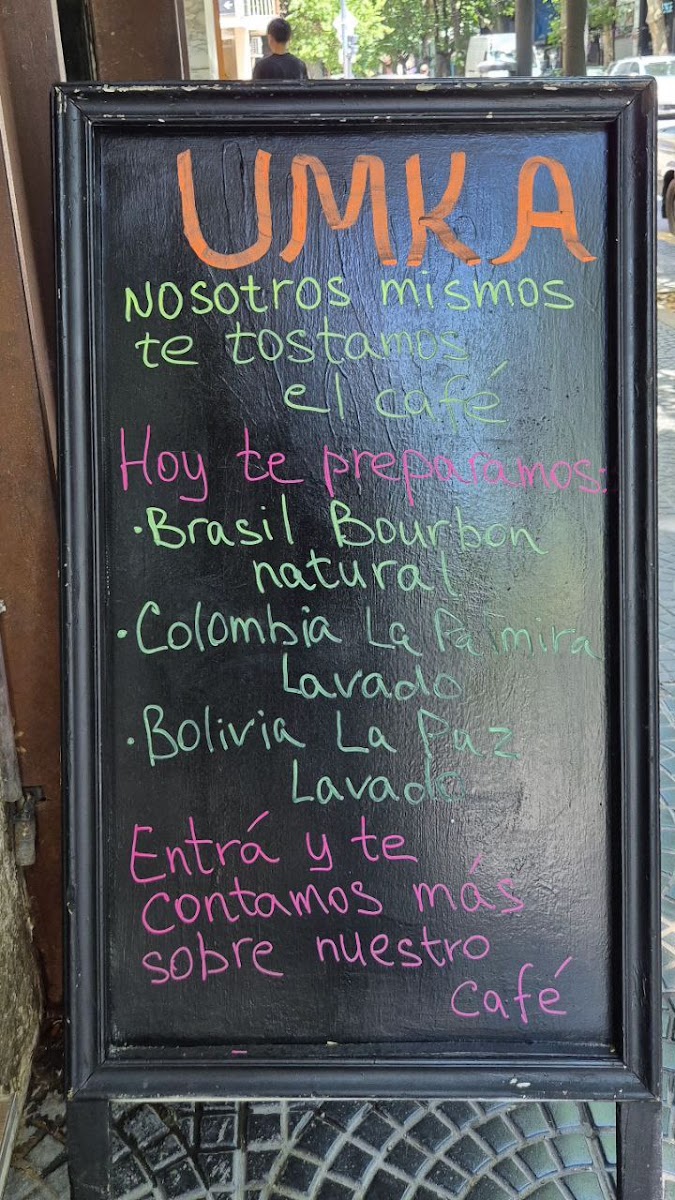 UMKA
Nosotros mismos
te tostamos
el café
Hoy te preparamos:
· Brasil Bourbon
natural
· Colombia La Palmira
Lavado
· Bolivia La Paz
Lavado
Entrá y te
contamos más
sobre nuestro
café